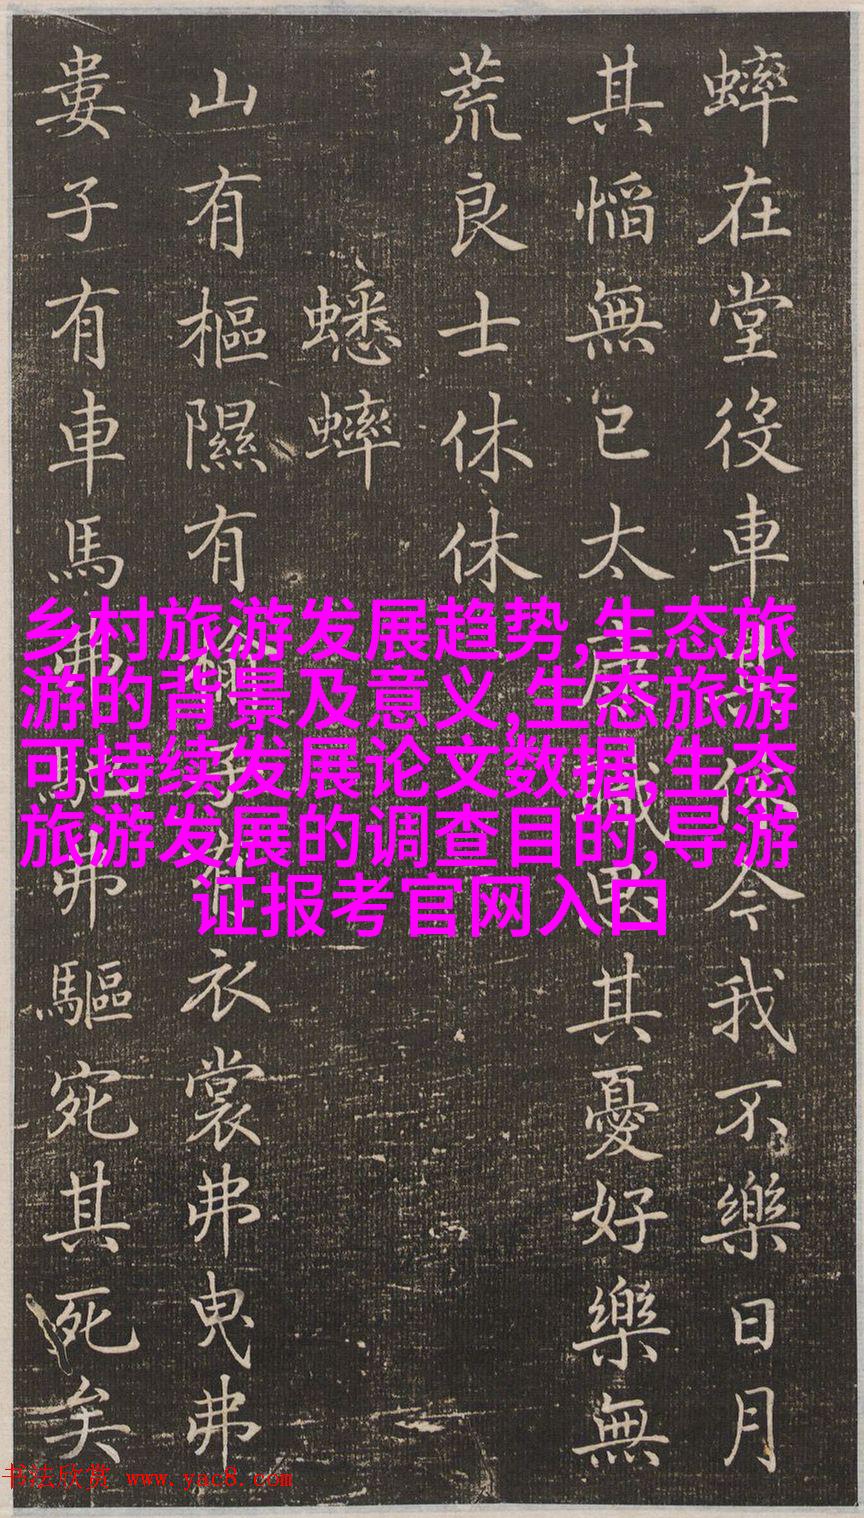 蟀在堂役車其休今我不樂日月
其慆無已太康職思其憂好樂無
荒良士休休
蟋蟀
山有樞隰有榆子有衣裳弗曳弗
婁子有車馬弗馳弗驅宛其死矣
乡村旅游发展趋势,生态旅
游的背景及意义,生态旅游
可持续发展论文数据,生态
旅游发展的调查目的,导游
证报考官网入口
书法欣赏 www.yac8.com